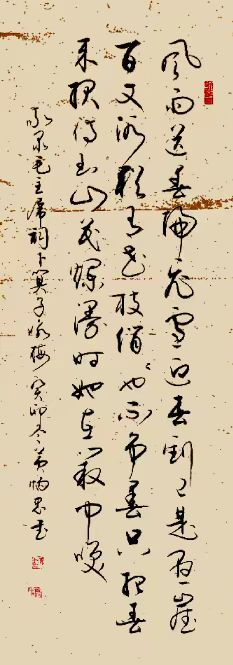 风雨送春归飞雪迎春到已是悬崖
百丈冰犹有花枝俏〻也不争春只把春
来报待到山花烂漫时她在丛中笑
敬录毛主席词卜算子咏梅癸卯冬书